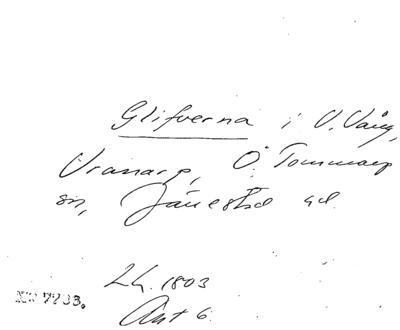 Glifverna i V. Vång,
Vranarp, Ö. Tommarp
sn, Järrestad hd.
LH. 1803
Akt 6
No 7783.